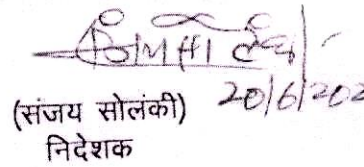 20/6/202
(संजय सोलंकी)
निदेशक